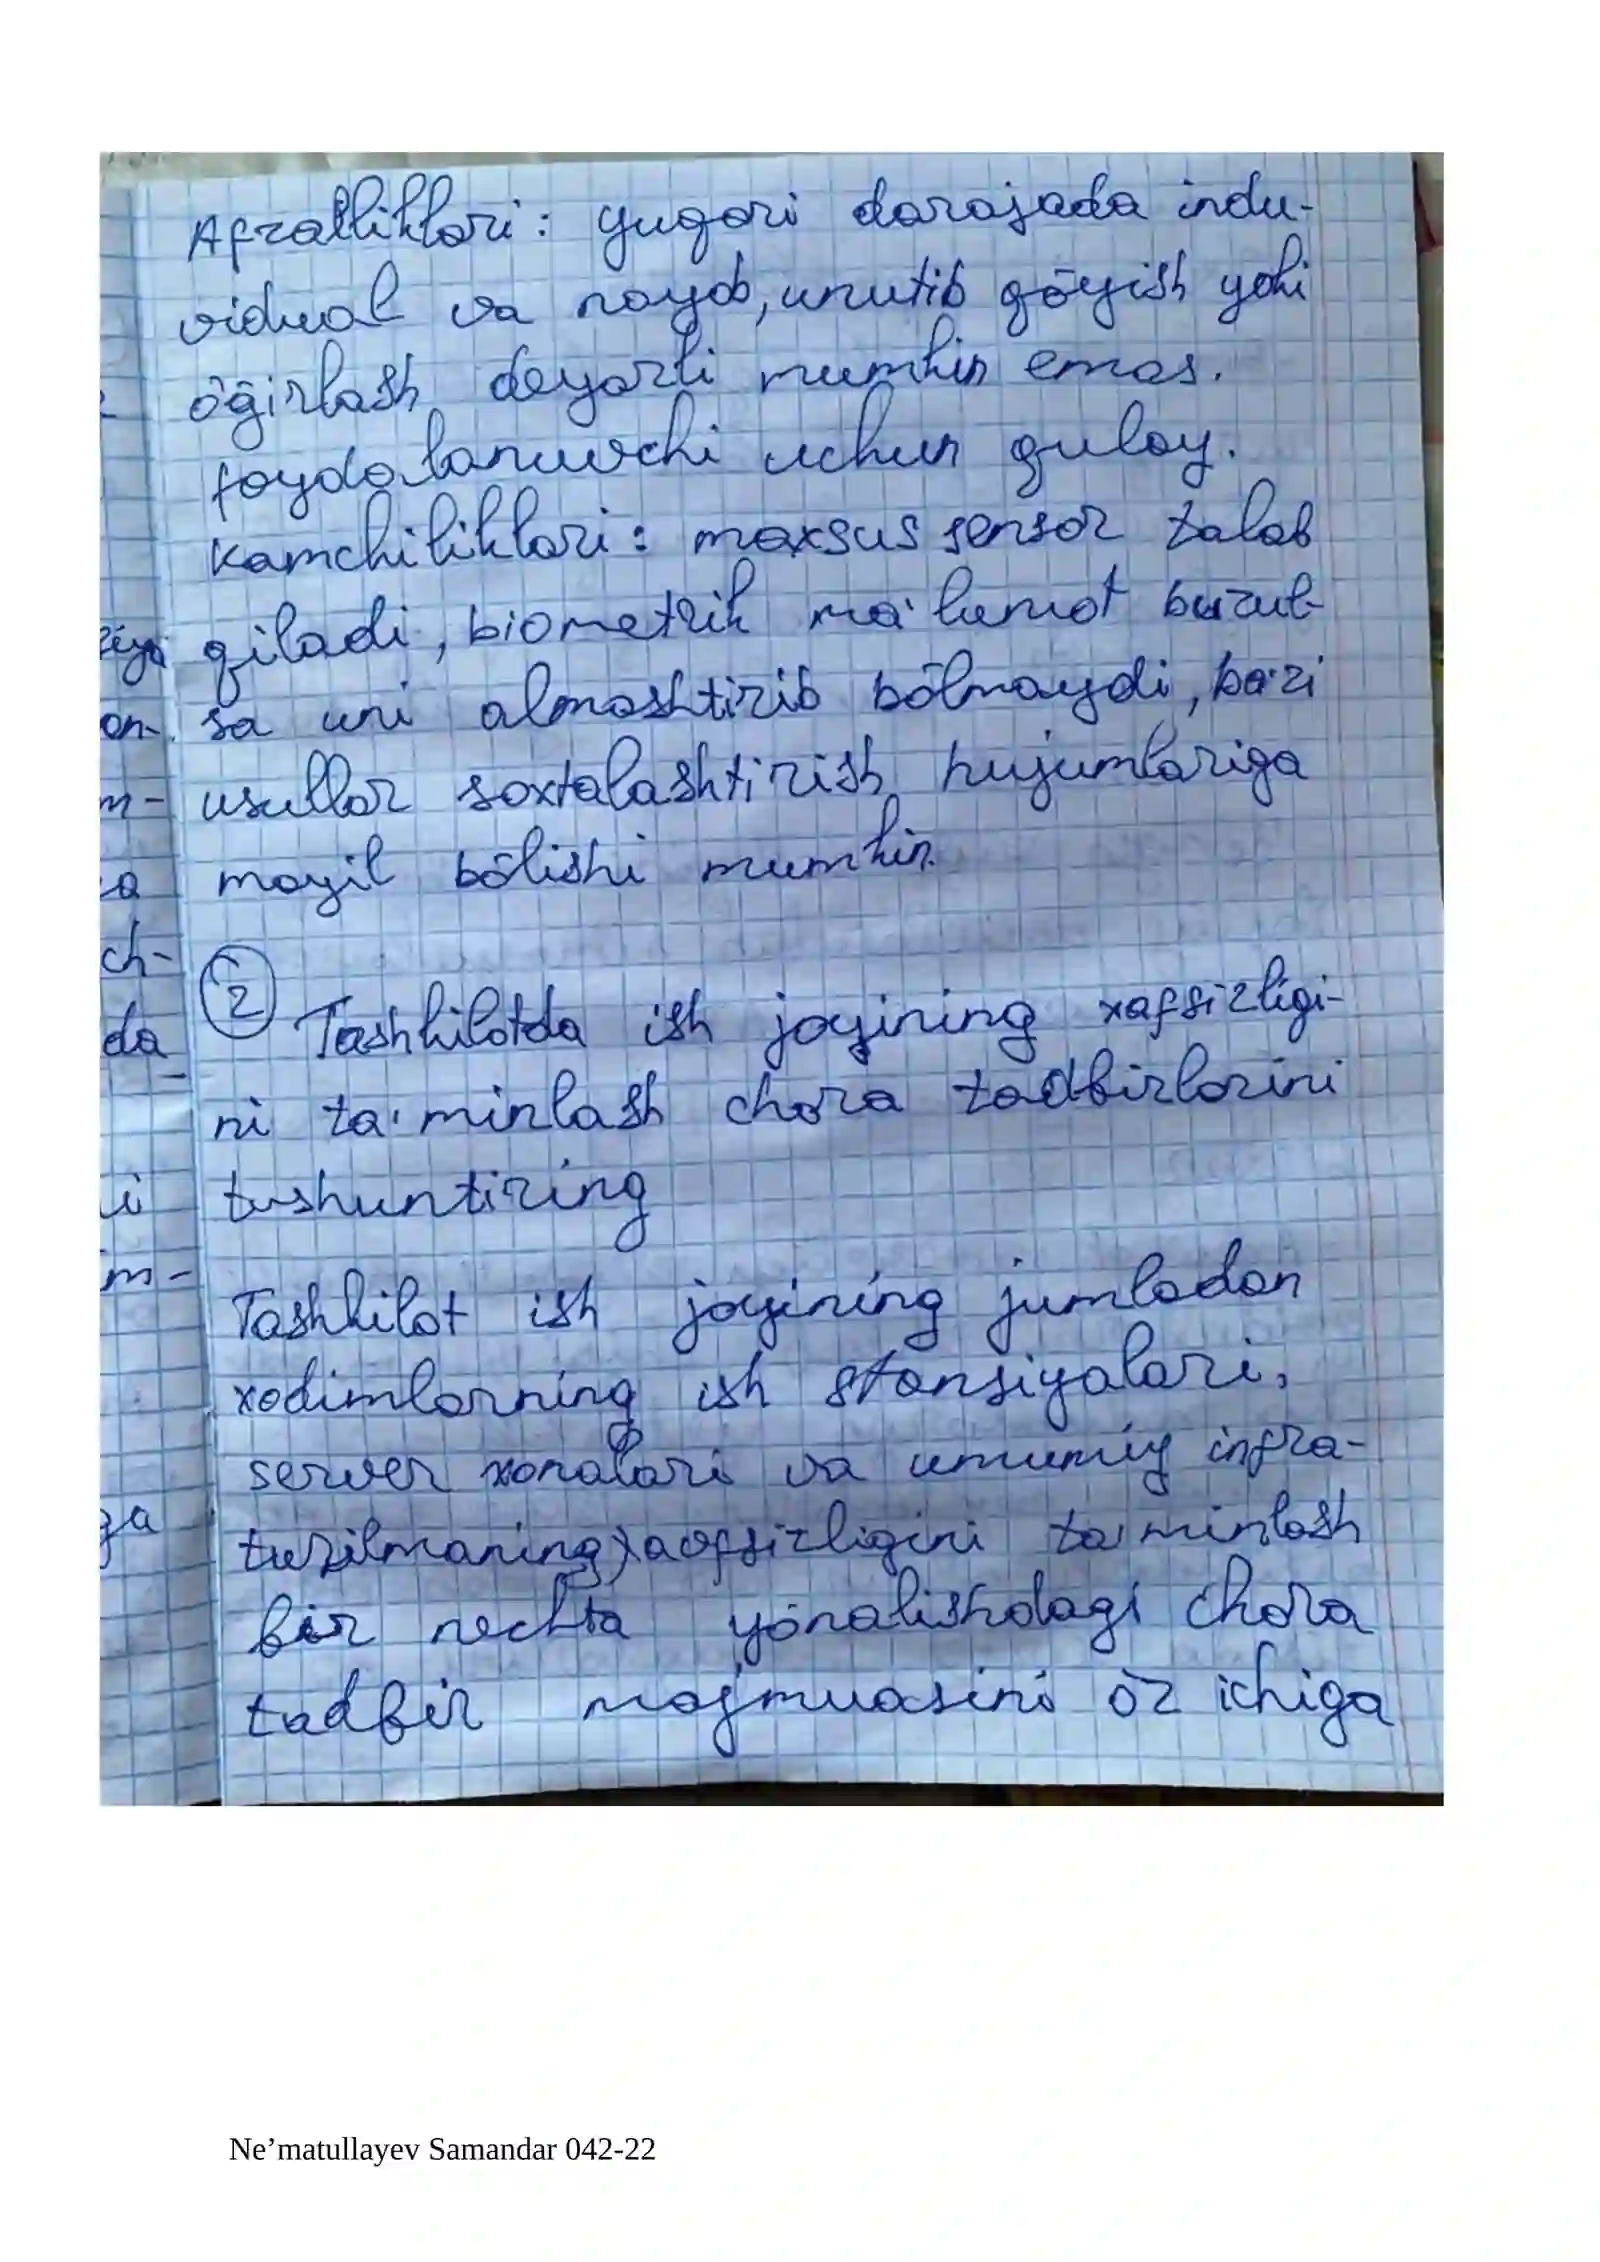 Afzalliklari: yuqori darajada indu-
vidual va noyob, unutib qōyish yoki
ōḡirlash deyarli mumkin emas.
foydalanuvchi uchun qulay.
Kamchiliklari: maxsus sensor talab
qiladi, biometrik ma'lumot buzul-
sa uni almashtirib bōlmaydi, ba'zi
usullar soxtalashtirish hujumlariga
moyil bōlishi mumkin.
2 Tashkilotda ish joyining xafsizligi-
ni ta'minlash chora tadbirlarini
tushuntiring
Tashkilot ish joyining jumladan
xodimlarning ish stansiyalari,
server xonalari va umumiy infra-
tuzilmaning xavfsizligini ta'minlash
bir nechta yōnalishdagi chora
tadbir majmuasini ōz ichiga
Ne’matullayev Samandar 042-22